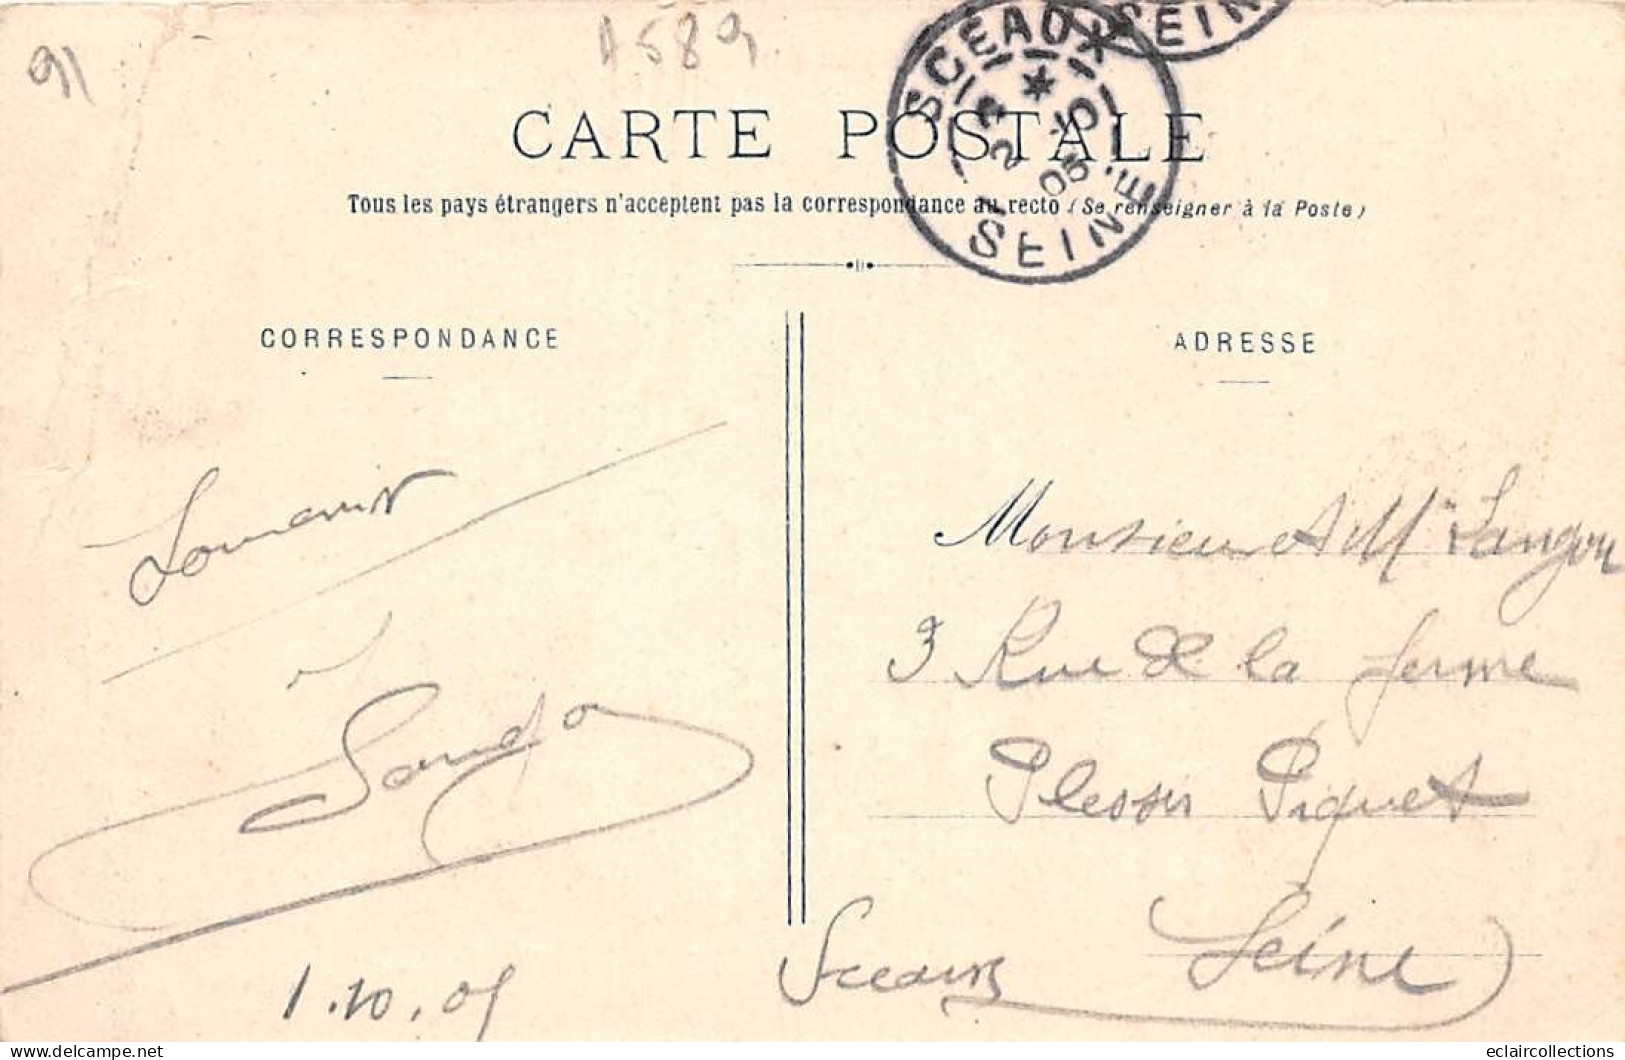 91
A589
CARTE POSTALE
SCEAUX
SEINE
SEIN
Tous les pays étrangers n'acceptent pas la correspondance au recto (Se renseigner à la Poste)
CORRESPONDANCE
ADRESSE
Souvenir
Monsieur et Mme Langou
3 Rue de la ferme
Plessis Piquet
Sceaux Seine
1.10.05
eclaircollections